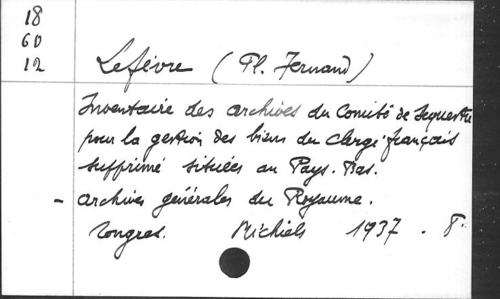 18
60
12
Lefèvre (Pl. Fernand)
Inventaire des archives du Comité de Sequestre
pour la gestion des biens du clergé français
supprimé situées au Pays-Bas.
- archives générales du Royaume.
Tongres. Michiels 1937. 8°.